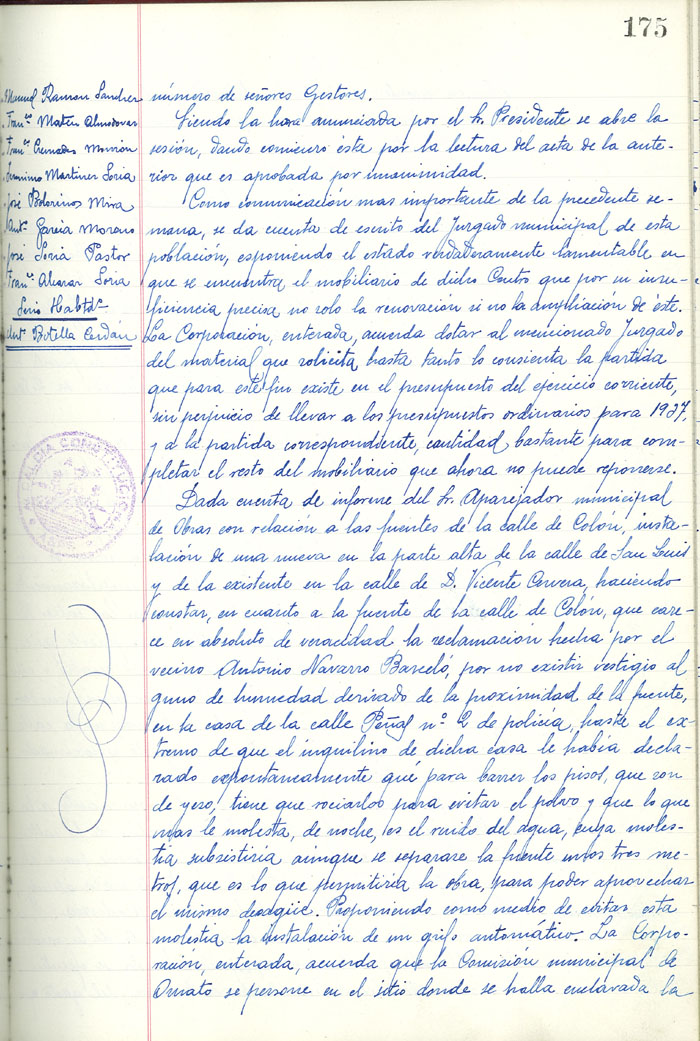 175
Manuel Ramon Sanchez
Franco Mateu Almodovar
Franco Cremades Monrión
Geronimo Martinez Soria
José Bolorinos Mira
Anto García Moreno
José Soria Pastor
Franco Alcaraz Soria
Srio Habtdo
Ant Botella Cerdán
número de señores Gestores.
Siendo la hora anunciada por el Sr. Presidente se abre la
sesión, dando comienzo ésta por la lectura del acta de la ante-
rior que es aprobada por unanimidad.
Como comunicación mas importante de la precedente se-
mana, se da cuenta de escrito del Juzgado municipal de esta
población, esponiendo el estado verdaderamente lamentable en
que se encuentra el mobiliario de dicho Centro que por su insu-
ficiencia precisa no solo la renovación si no la ampliación de éste.
La Corporación, enterada, acuerda dotar al mencionado Juzgado
del material que solicita hasta tanto lo consienta la partida
que para este fin existe en el presupuesto del ejercicio corriente,
sin perjuicio de llevar a los presupuestos ordinarios para 1937,
y a la partida correspondiente, cantidad bastante para com-
pletar el resto del mobiliario que ahora no puede reponerse.
Dada cuenta de informe del Sr. Aparejador municipal
de Obras con relación a las fuentes de la calle de Colón, insta-
lación de una nueva en la parte alta de la calle de San Luis
y de la existente en la calle de D. Vicente Cervera, haciendo
constar, en cuanto a la fuente de la calle de Colón, que care-
ce en absoluto de veracidad la reclamación hecha por el
vecino Antonio Navarro Barceló, por no existir vestigio al
guno de humedad derivado de la proximidad de la fuente,
en la casa de la calle Peñal nº 2 de policia, hasta el ex-
tremo de que el inquilino de dicha casa le habia decla-
rado espontaneamente que para barrer los pisos, que son
de yeso, tiene que rociarlos para evitar el polvo y que lo que
mas le molesta, de noche, es el ruido del agua, cuya moles-
tia subsistiria aunque se separare la fuente unos tres me-
tros, que es lo que permitiria la obra, para poder aprovechar
el mismo desagüe. Proponiendo como medio de evitar esta
molestia la instalación de un grifo automático. La Corpo-
ración, enterada, acuerda que la Comisión municipal de
Ornato se persone en el sitio donde se halla enclavada la